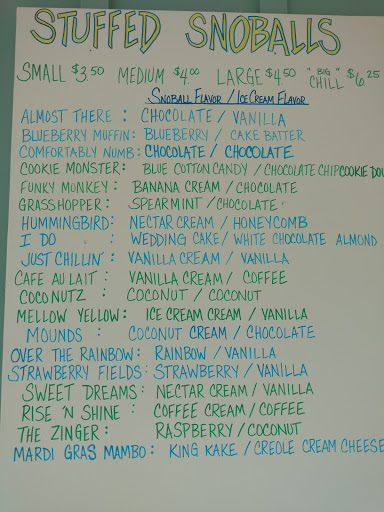 STUFFED SNOBALLS
SMALL $3.50 MEDIUM $4.00 LARGE $4.50 "BIG" CHILL $6.25
SNOBALL FLAVOR / ICE CREAM FLAVOR
ALMOST THERE : CHOCOLATE / VANILLA
BLUEBERRY MUFFIN: BLUEBERRY / CAKE BATTER
COMFORTABLY NUMB: CHOCOLATE / CHOCOLATE
COOKIE MONSTER: BLUE COTTON CANDY / CHOCOLATE CHIP COOKIE DOU
FUNKY MONKEY: BANANA CREAM / CHOCOLATE
GRASSHOPPER: SPEARMINT / CHOCOLATE
HUMMINGBIRD: NECTAR CREAM / HONEYCOMB
I DO : WEDDING CAKE / WHITE CHOCOLATE ALMOND
JUST CHILLIN': VANILLA CREAM / VANILLA
CAFE AU LAIT : VANILLA CREAM / COFFEE
COCONUTZ : COCONUT / COCONUT
MELLOW YELLOW: ICE CREAM CREAM / VANILLA
MOUNDS : COCONUT CREAM / CHOCOLATE
OVER THE RAINBOW: RAINBOW / VANILLA
STRAWBERRY FIELDS: STRAWBERRY / VANILLA
SWEET DREAMS: NECTAR CREAM / VANILLA
RISE 'N SHINE : COFFEE CREAM / COFFEE
THE ZINGER : RASPBERRY / COCONUT
MARDI GRAS MAMBO: KING KAKE / CREOLE CREAM CHEESE